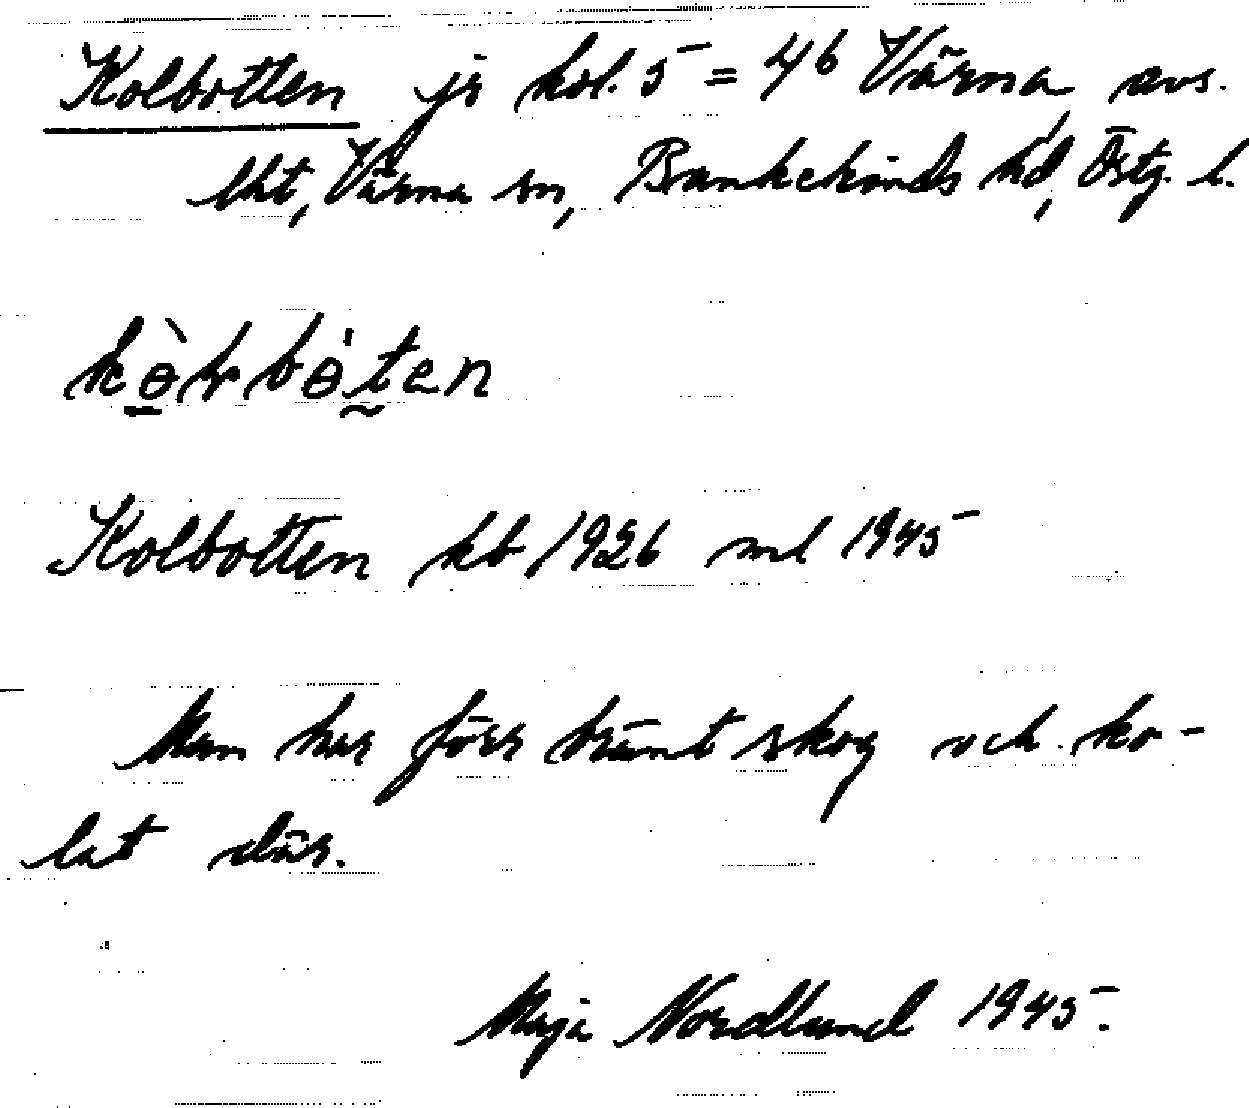 Kolbotten jä kol. 5 = 46 Värna avs.
lht, Värna sn, Bankekinds hd, Östg. l.
kɵ̀rbɵ́ten
Kolbotten kb 1926 ml 1945
Man har förr bränt skog och ko-
lat där.
Maja Nordlund 1945.